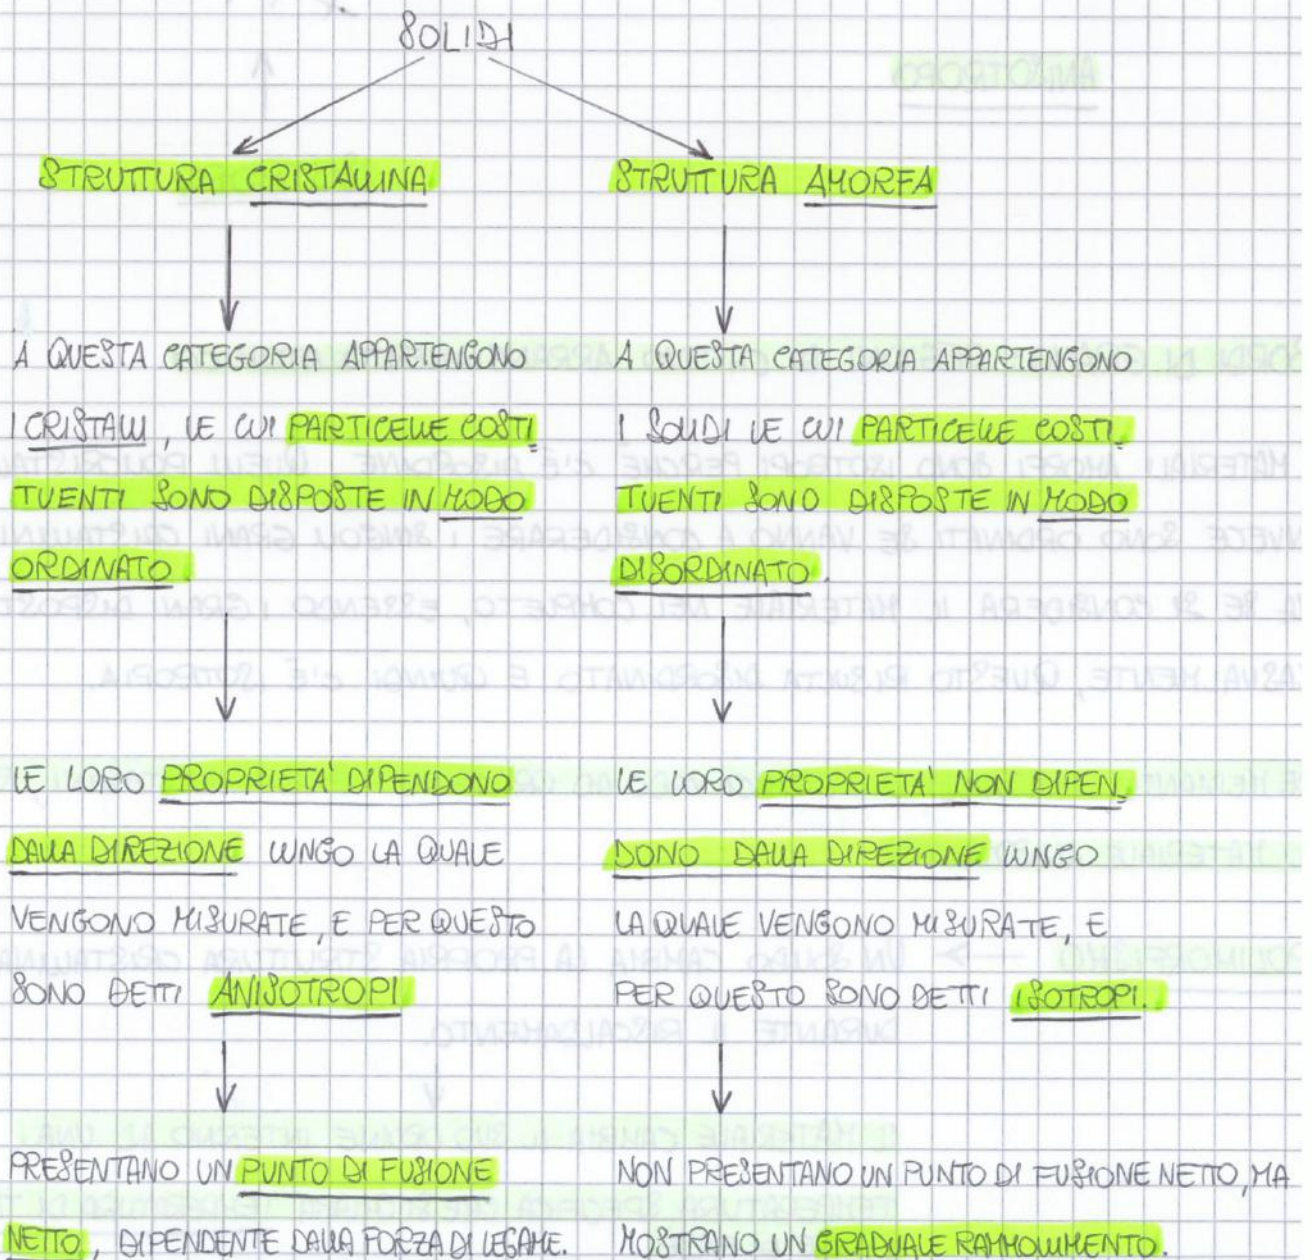 SOLIDI
STRUTTURA CRISTALLINA
A QUESTA CATEGORIA APPARTENGONO
I CRISTALLI, LE CUI PARTICELLE COSTI
TUENTI SONO DISPOSTE IN MODO
ORDINATO.
LE LORO PROPRIETA' DIPENDONO
DALLA DIREZIONE LUNGO LA QUALE
VENGONO MISURATE, E PER QUESTO
SONO DETTI ANISOTROPI
PRESENTANO UN PUNTO DI FUSIONE
NETTO, DIPENDENTE DALLA FORZA DI LEGAME.
STRUTTURA AMORFA
A QUESTA CATEGORIA APPARTENGONO
I SOLIDI LE CUI PARTICELLE COSTI
TUENTI SONO DISPOSTE IN MODO
DISORDINATO.
LE LORO PROPRIETA' NON DIPEN
DONO DALLA DIREZIONE LUNGO
LA QUALE VENGONO MISURATE, E
PER QUESTO SONO DETTI ISOTROPI.
NON PRESENTANO UN PUNTO DI FUSIONE NETTO, MA
MOSTRANO UN GRADUALE RAMMOLLIMENTO.